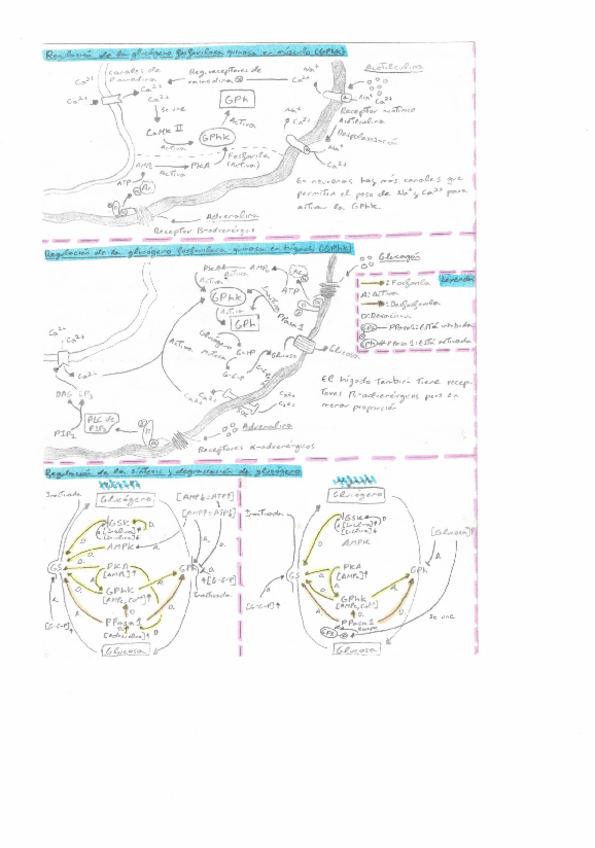 Regulación de la glucógeno fosforilasa quinasa en músculo (GPhK)
canales de rianodina
Reg. receptores de rianodina
Na+
Acetilcolina
Ca2+
Ca2+
Ca2+
Ca2+
Ca2+
Se une
GPh
Na+
Ca2+
Receptor
Acetilcolina
CaMK II
Activa
Na+
Ca2+
Despolarización
Activa
GPhK
Na+
AMPc
PKA
Fosforila
(Activa)
Ca2+
Activa
ATP
AC
En neuronas hay más canales que
permiten el paso de Na+ y Ca2+ para
activar la GPhK.
Adrenalina
Receptor β-adrenérgico
Regulación de la glucógeno fosforilasa quinasa en hígado (GPhK)
Glucagón
PKA
AMPc
AC
Activa
Activa
ATP
Leyenda
GPhK
: Fosforila
A: Activa
Activa
PPasa 1
: Desfosforila
GPh
D: Desactiva
PPasa 1 está inhibida
PPasa 1 está activada
Ca2+
Glucógeno
Activa
Activa
G-1-P
Glucosa
Glucosa
G-6-P
Ca2+
El hígado también tiene recep-
tores β-adrenérgicos pero en
menor proporción
Ca2+
Ca2+
DAG
IP3
SOC
PLC
PIP2
PIP2
Adrenalina
Receptores α-adrenérgicos
Regulación de la síntesis y degradación de glucógeno
Músculo
Hígado
Inactivada
Glucógeno
[AMP↓:ATP↑]
[AMP↑:ATP↓]
Inactivada
Glucógeno
[Glucosa]↑
GSK
[Insulina]↑
[Insulina]↓
GSK
[Insulina]↑
[Insulina]↓
AMPK
AMPK
GS
PKA
[AMPc]↑
GPh
GS
PKA
[AMPc]↑
GPh
↑[G-6-P]
GPhK
[AMPc, Ca2+]↑
Inactivada
GPhK
[AMPc, Ca2+]↑
[G-6-P]↑
PPasa 1
[Adrenalina]↑
[G-6-P]↑
PPasa 1
Se une
Glucosa
Glucosa